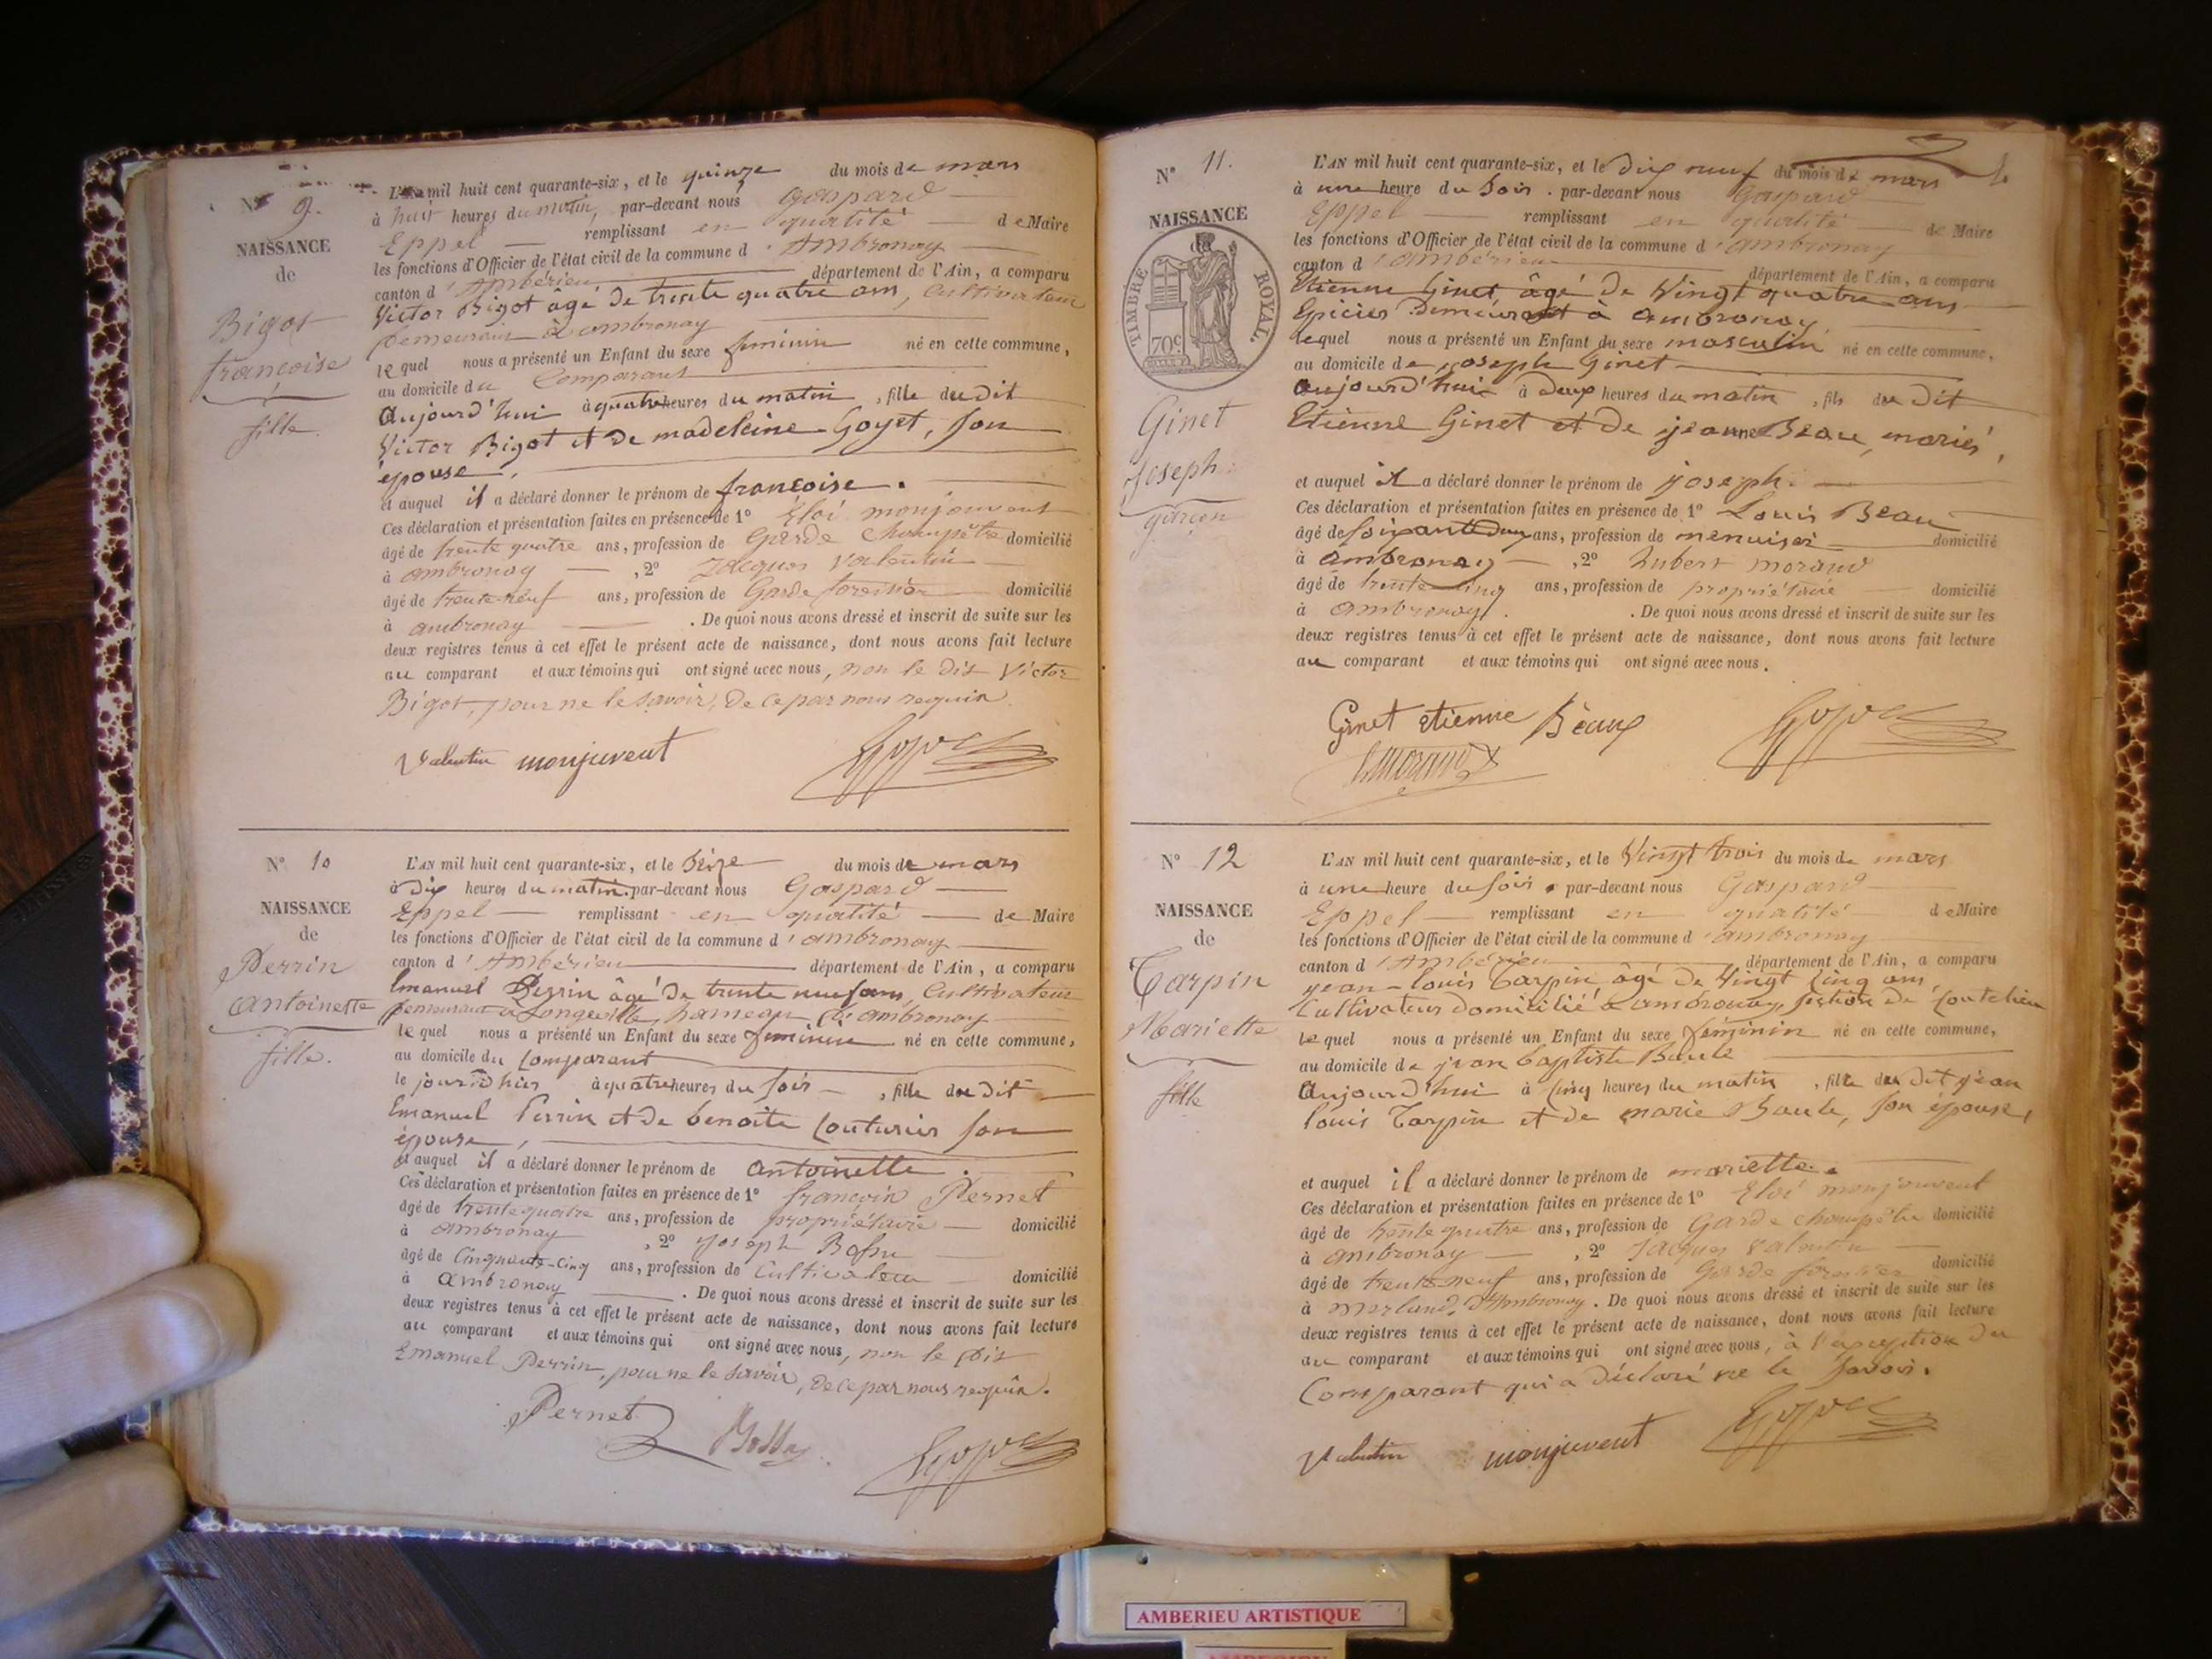 N° 9.
NAISSANCE
de
Bigot
françoise
fille.
L'AN mil huit cent quarante-six, et le quinze du mois de mars
à huit heures du matin, par-devant nous Gaspard
Eppel remplissant en qualité de Maire
les fonctions d'Officier de l'état civil de la commune d'Ambronay
canton d'Ambérieu département de l'Ain, a comparu
Victor Bigot âgé de trente quatre ans, Cultivateur
demeurant à ambronay
lequel nous a présenté un Enfant du sexe féminin né en cette commune,
au domicile du Comparant
Aujourd'hui à quatre heures du matin, fille du dit
Victor Bigot et de madeleine Goyet, son
épouse,
et auquel il a déclaré donner le prénom de françoise.
Ces déclaration et présentation faites en présence de 1° Eloi monjouvent
âgé de trente quatre ans, profession de Garde Champêtre domicilié
à ambronay, 2° Jacques Valentin
âgé de trente-neuf ans, profession de Garde forestier domicilié
à ambronay. De quoi nous avons dressé et inscrit de suite sur les
deux registres tenus à cet effet le présent acte de naissance, dont nous avons fait lecture
au comparant et aux témoins qui ont signé avec nous, non le dit Victor
Bigot, pour ne le savoir, de ce par nous requis.
Valentin monjuvent
N° 10
NAISSANCE
de
Perrin
antoinette
fille.
L'AN mil huit cent quarante-six, et le seize du mois de mars
à dix heures du matin. par-devant nous Gaspard
Eppel remplissant en qualité de Maire
les fonctions d'Officier de l'état civil de la commune d'ambronay
canton d'Ambérieu département de l'Ain, a comparu
Emanuel Perrin âgé de trente neuf ans, Cultivateur
demeurant à Longeville, hameau d'ambronay
lequel nous a présenté un Enfant du sexe féminin né en cette commune,
au domicile du Comparant
le jour d'hier à quatre heures du soir, fille du dit
Emanuel Perrin et de benoite Couturier son
épouse,
et auquel il a déclaré donner le prénom de antoinette.
Ces déclaration et présentation faites en présence de 1° françois Pernet
âgé de trente quatre ans, profession de propriétaire domicilié
à ambronay, 2° Joseph
âgé de Cinquante-cinq ans, profession de Cultivateur domicilié
à ambronay. De quoi nous avons dressé et inscrit de suite sur les
deux registres tenus à cet effet le présent acte de naissance, dont nous avons fait lecture
au comparant et aux témoins qui ont signé avec nous, non le dit
Emanuel Perrin, pour ne le savoir, de ce par nous requis.
Pernet
N° 11.
NAISSANCE
TIMBRE ROYAL
70c
Ginet
Joseph
garçon
L'AN mil huit cent quarante-six, et le dix neuf du mois de mars
à une heure du soir. par-devant nous Gaspard
Eppel remplissant en qualité de Maire
les fonctions d'Officier de l'état civil de la commune d'ambronay
canton d'Ambérieu département de l'Ain, a comparu
Etienne Ginet âgé de Vingt quatre ans
Epicier demeurant à ambronay
lequel nous a présenté un Enfant du sexe masculin né en cette commune,
au domicile de joseph Ginet
Aujourd'hui à deux heures du matin, fils du dit
Etienne Ginet et de jeanne Beau, mariés,
et auquel il a déclaré donner le prénom de joseph.
Ces déclaration et présentation faites en présence de 1° Louis Beau
âgé de soixante deux ans, profession de menuisier domicilié
à ambronay, 2° hubert morand
âgé de trente cinq ans, profession de propriétaire domicilié
à ambronay. De quoi nous avons dressé et inscrit de suite sur les
deux registres tenus à cet effet le présent acte de naissance, dont nous avons fait lecture
au comparant et aux témoins qui ont signé avec nous.
Ginet etienne Beaux
N° 12
NAISSANCE
de
Tarpin
Mariette
fille
L'AN mil huit cent quarante-six, et le Vingt trois du mois de mars
à une heure du soir. par-devant nous Gaspard
Eppel remplissant en qualité de Maire
les fonctions d'Officier de l'état civil de la commune d'ambronay
canton d'Ambérieu département de l'Ain, a comparu
jean-louis Tarpin, âgé de Vingt Cinq ans,
Cultivateur domicilié à ambronay, section de Coutelieu
lequel nous a présenté un Enfant du sexe féminin né en cette commune,
au domicile de jean baptiste Baule
Aujourd'hui à Cinq heures du matin, fille du dit jean
louis Tarpin et de marie Baule, son épouse,
et auquel il a déclaré donner le prénom de mariette.
Ces déclaration et présentation faites en présence de 1° Eloi monjouvent
âgé de trente quatre ans, profession de Garde Champêtre domicilié
à ambronay, 2° Jacques Valentin
âgé de trente neuf ans, profession de Garde forestier domicilié
à merland, d'Ambronay. De quoi nous avons dressé et inscrit de suite sur les
deux registres tenus à cet effet le présent acte de naissance, dont nous avons fait lecture
au comparant et aux témoins qui ont signé avec nous, à l'exception du
Comparant qui a déclaré ne le savoir.
Valentin monjuvent
AMBERIEU ARTISTIQUE